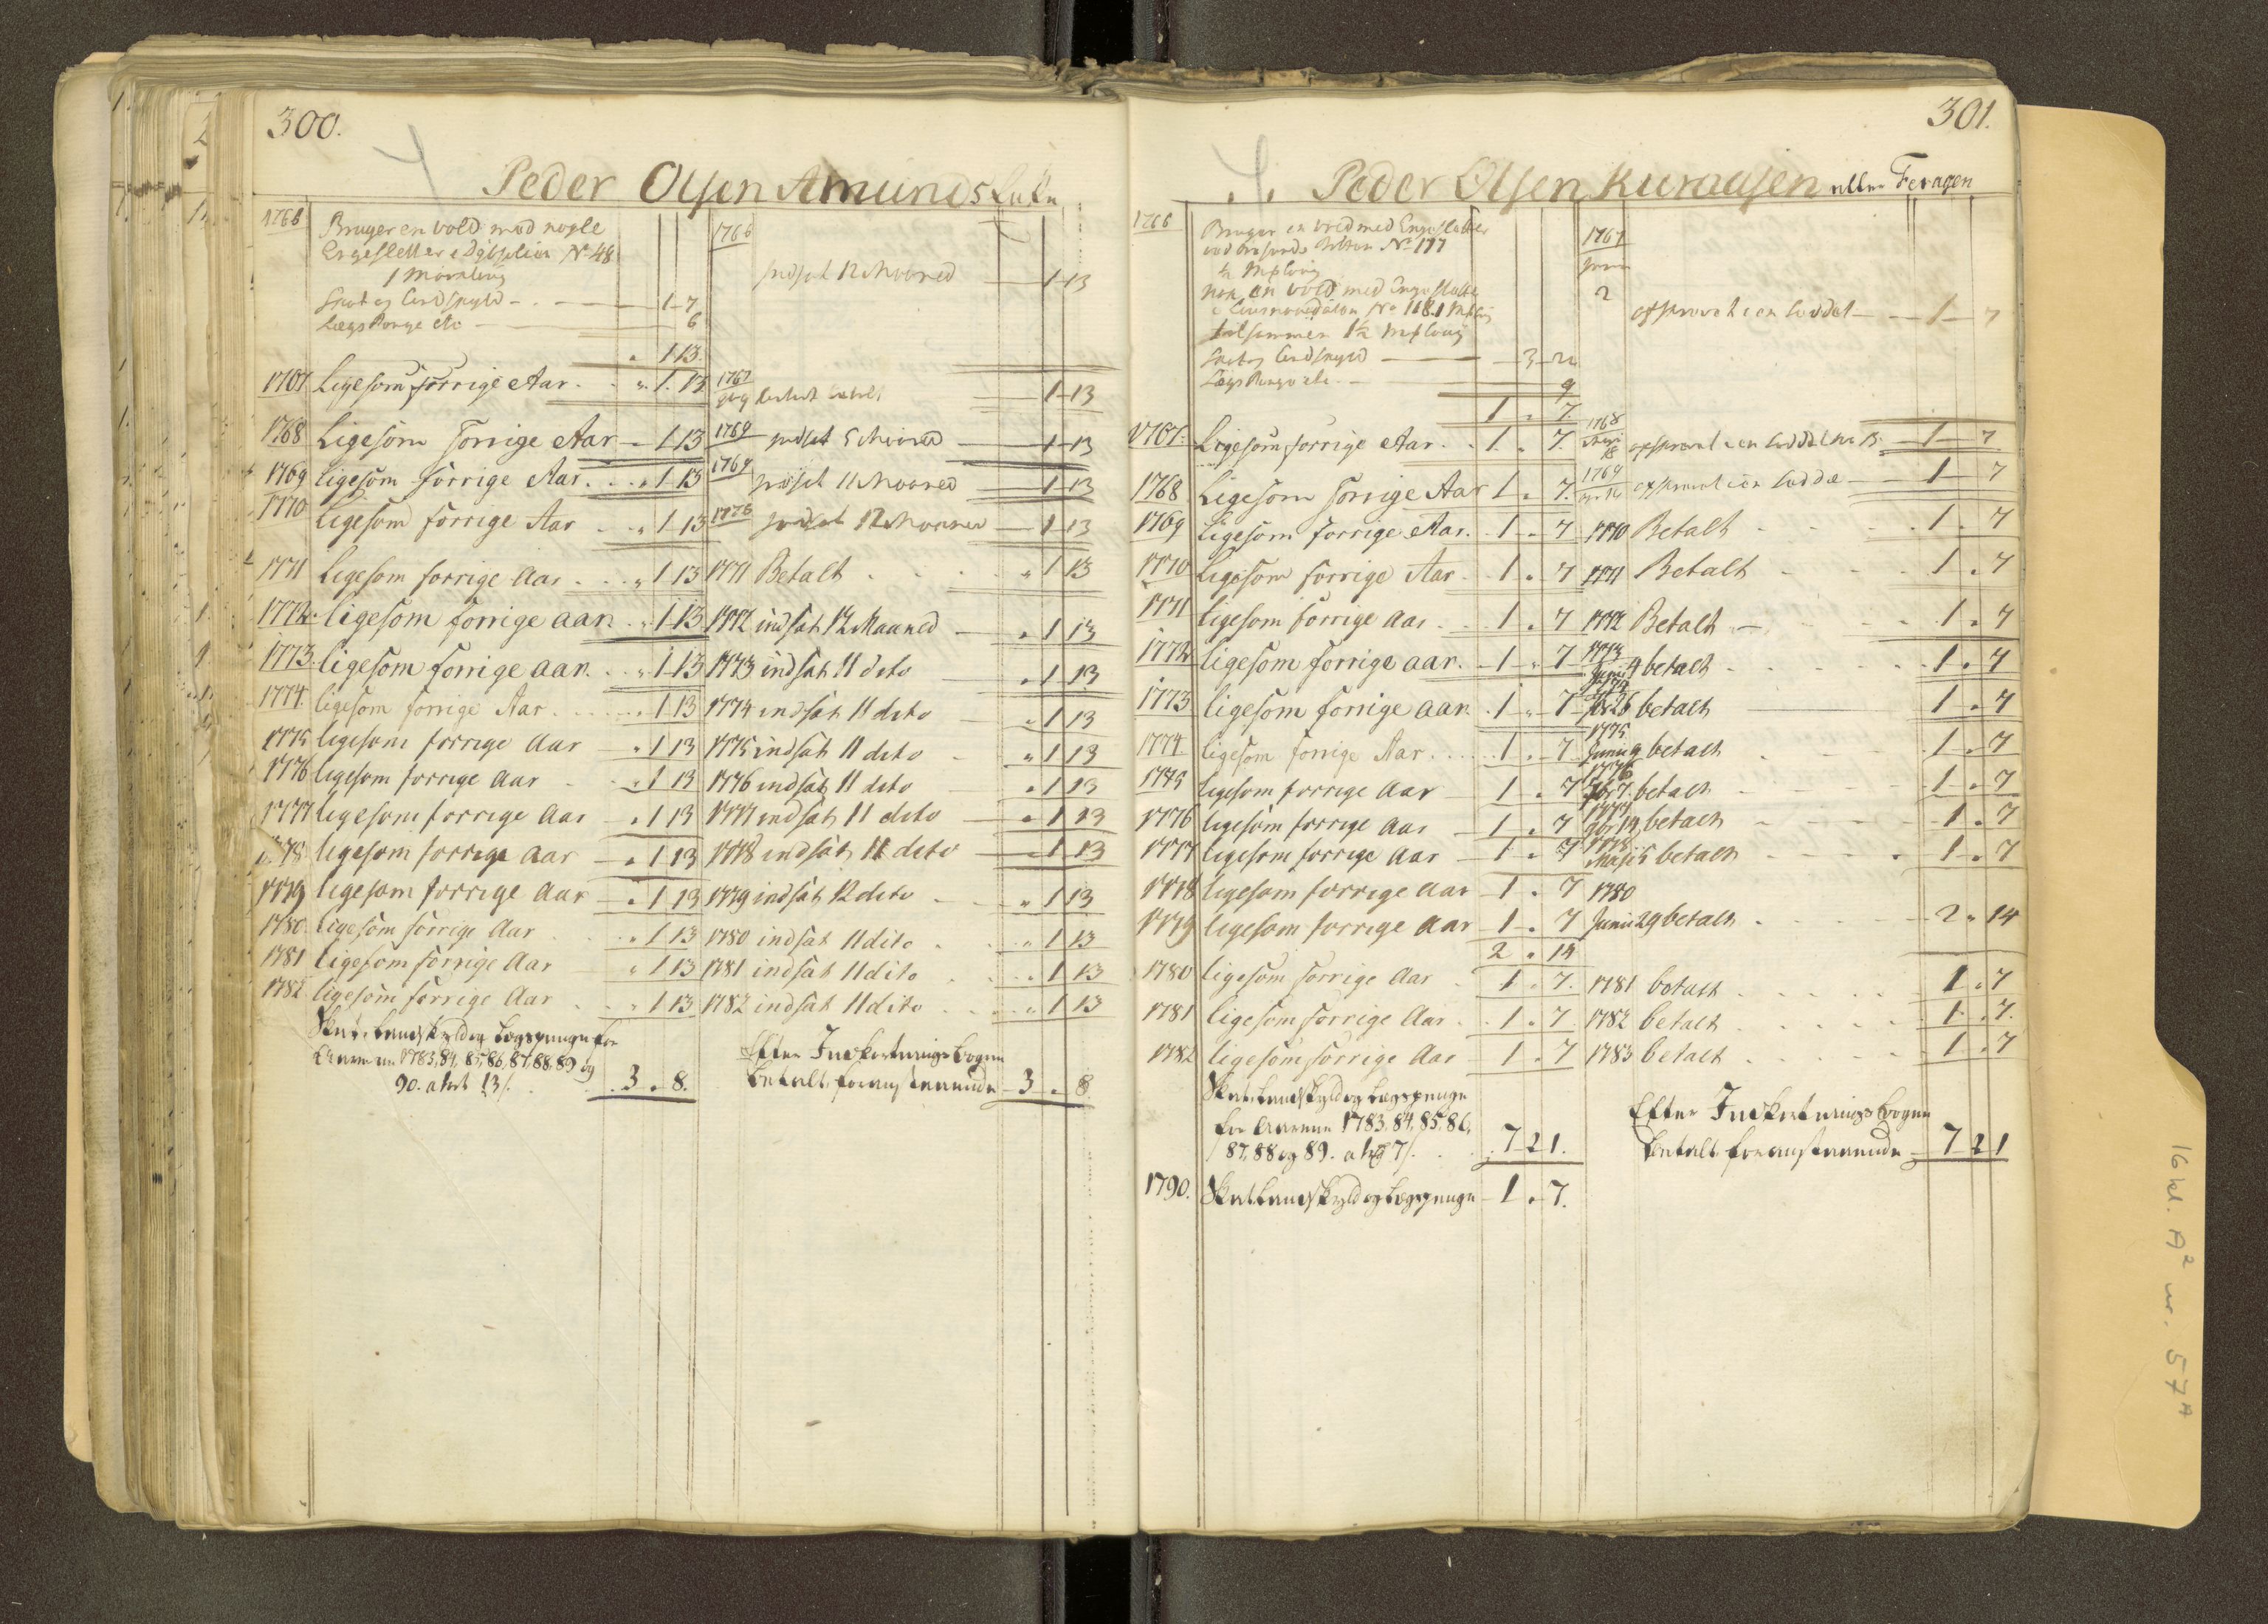 300.
Peder Olsen Amunds
1766 Bruger en vold med nogle 1766
Engesletter No 48
1 Mæhling indsat 12 Maaned 1 13
Skat og Landskyld 1 7
Lægs Penge etc 6
1 13.
1767 Ligesom forrige Aar 1. 13 1767 betalt 1 13
1768 Ligesom forrige Aar 1 13 1769 indsat 5 Maaned 1 13
1769 ligesom forrige Aar 1 13 1769 indsat 11 Maaned 1 13
1770 Ligesom forrige Aar 1 13 1770 indsat 12 Maaned 1 13
1771 ligesom forrige Aar 1 13 1771 Betalt 1 13
1772 ligesom forrige aar. 1 13 1772 indsat 12 Maaned 1 13
1773 ligesom forrige aar. 1 13 1773 indsat 11 deto 1 13
1774. ligesom forrige Aar 1 13 1774 indsat 11 deto 1 13
1775 ligesom forrige Aar 1 13 1775 indsat 11 deto 1 13
1776 ligesom forrige Aar 1 13 1776 indsat 11 deto 1 13
1777 ligesom forrige Aar 1 13 1777 indsat 11 deto 1 13
1778 ligesom forrige Aar 1 13 1778 indsat 11 deto 1 13
1779 ligesom forrige Aar 1 13 1779 indsat 12 deto 1 13
1780 ligesom forrige Aar 1 13 1780 indsat 11 dito 1 13
1781 ligesom forrige Aar 1 13 1781 indsat 11 dito 1 13
1782 ligesom forrige Aar 1 13 1782 indsat 11 dito 1 13
Skat, Landskyld og Lægspenge for
Aarene 1783, 84, 85, 86, 87, 88, 89 og Efter Indkortnings bogen
90. a 1 ort 13 s. 3. 8. betalt foranstaaende 3. 8.
301.
Peder Olsen Kuraasen eller Feragen
1766 Bruger en vold med Engesletter 1767
ved No 117
½ Mæhling
nok en vold med Engeslette 2 afskrevet i en Seddel 1 7
No 118. 1
tilsammen 1½
Skat og Landskyld 3 22
Lægs Penge etc. 9
1 . 7.
1767. Ligesom forrige Aar 1 . 7. 1768 afskrevet i en Seddel 1 7
1768 Ligesom forrige Aar 1 . 7. 1769 afskrevet i en Seddel 1 7
1769 Ligesom forrige Aar. 1 . 7 1770 Betalt 1 . 7
1770 Ligesom forrige Aar 1 . 7 1771 Betalt 1 . 7
1771 ligesom forrige Aar 1 . 7 1772 Betalt 1 . 7
1772 ligesom forrige aar. 1 . 7 1773 Juni 4 betalt 1 . 7
1773 ligesom forrige aar. 1 . 7 26 betalt 1 . 7
1774 ligesom forrige Aar 1 . 7 1775 Junii 9 betalt 1 . 7
1775 ligesom forrige Aar 1 . 7 1776 7 betalt 1 . 7
1776 ligesom forrige Aar 1 . 7 1777 14 betalt 1 . 7
1777 ligesom forrige Aar 1 . 7 1778 Maji 5 betalt 1 . 7
1778 ligesom forrige Aar 1 . 7 1780
1779 ligesom forrige Aar 1 . 7 Junii 29 betalt 2 . 14
2 . 14
1780 ligesom forrige Aar 1 . 7. 1781 betalt 1 . 7
1781 ligesom forrige Aar 1 . 7 1782 betalt 1 . 7.
1782 ligesom forrige Aar 1 . 7 1783 betalt 1 . 7
Skat, Landskyld og Lægspenge
for Aarene 1783, 84, 85, 86, Efter Indkortnings bogen
87, 88 og 89. a 1 rd 7 s. 7 2 1. betalt foranstaaende 7 2 1
1790. Skat Landskyld og Lægspenge 1 . 7.
16 kl. A² nr. 57A